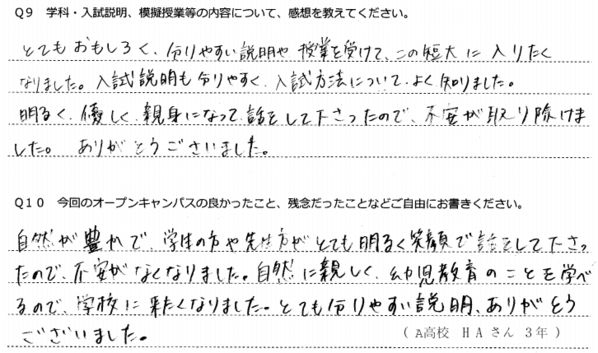 Q9 学科・入試説明、模擬授業等の内容について、感想を教えてください。
とてもおもしろく、分りやすい説明や授業を受けて、この短大に入りたく
なりました。入試説明も分りやすく、入試方法について、よく知りました。
明るく、優しく、親身になって話をして下さったので、不安が取り除けま
した。ありがとうございました。
Q10 今回のオープンキャンパスの良かったこと、残念だったことなどご自由にお書きください。
自然が豊かで、学生の方や先生方がとても明るく笑顔で話をして下さっ
たので、不安がなくなりました。自然に親しく、幼児教育のことを学べ
るので、学校に来たくなりました。とても分りやすい説明、ありがとう
ございました。
（A高校 HAさん 3年）